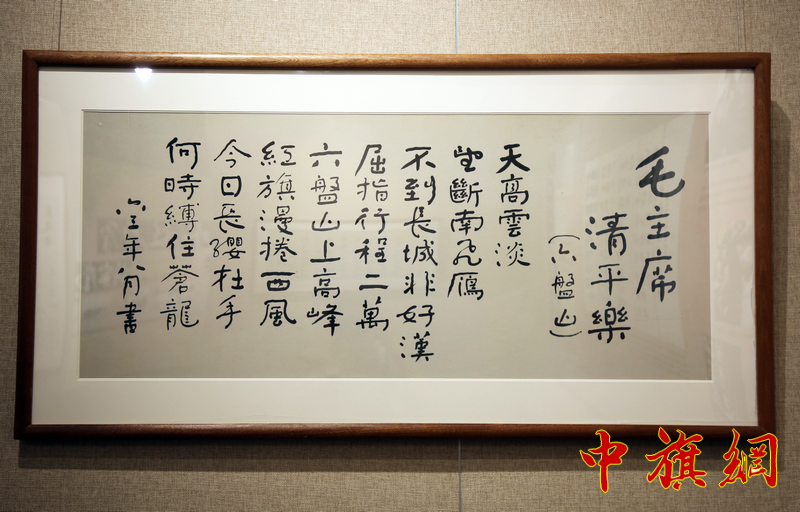 毛主席
清平樂
（六盤山）
天高雲淡
望斷南飛鴈
不到長城非好漢
屈指行程二萬
六盤山上高峰
紅旗漫捲西風
今日長纓在手
何時縛住蒼龍
六三年八月書
中旗網